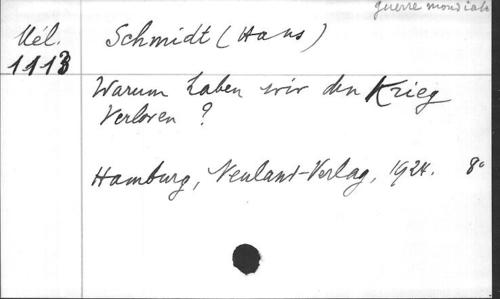 guerre mondiale
Mél.
1113
Schmidt (Hans)
Warum haben wir den Krieg
Verloren ?
Hamburg, Neuland-Verlag, 1924. 8°